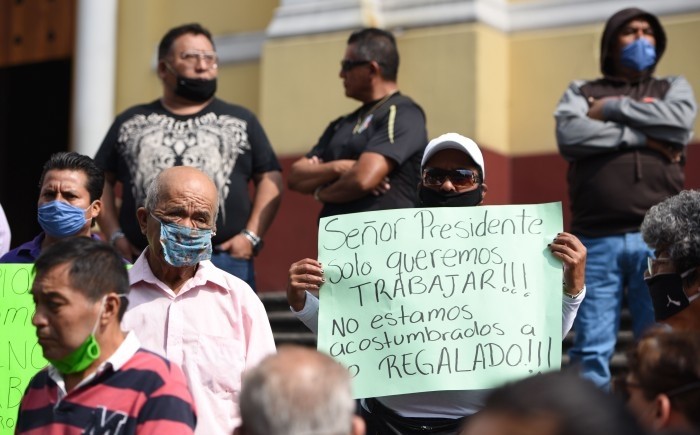 Señor Presidente
solo queremos
TRABAJAR!!!
NO estamos
acostumbrados a
REGALADO!!!